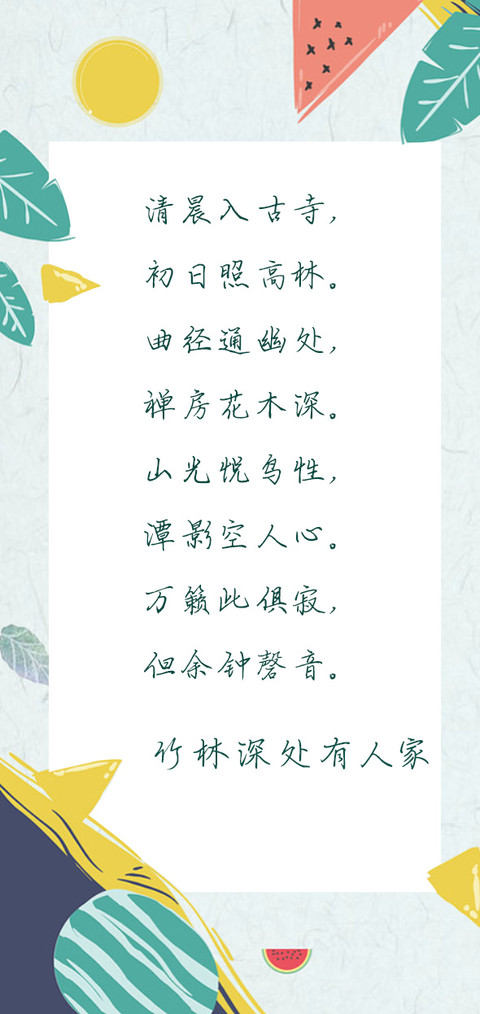 清晨入古寺,
初日照高林。
曲径通幽处,
禅房花木深。
山光悦鸟性,
潭影空人心。
万籁此俱寂,
但余钟磬音。
竹林深处有人家